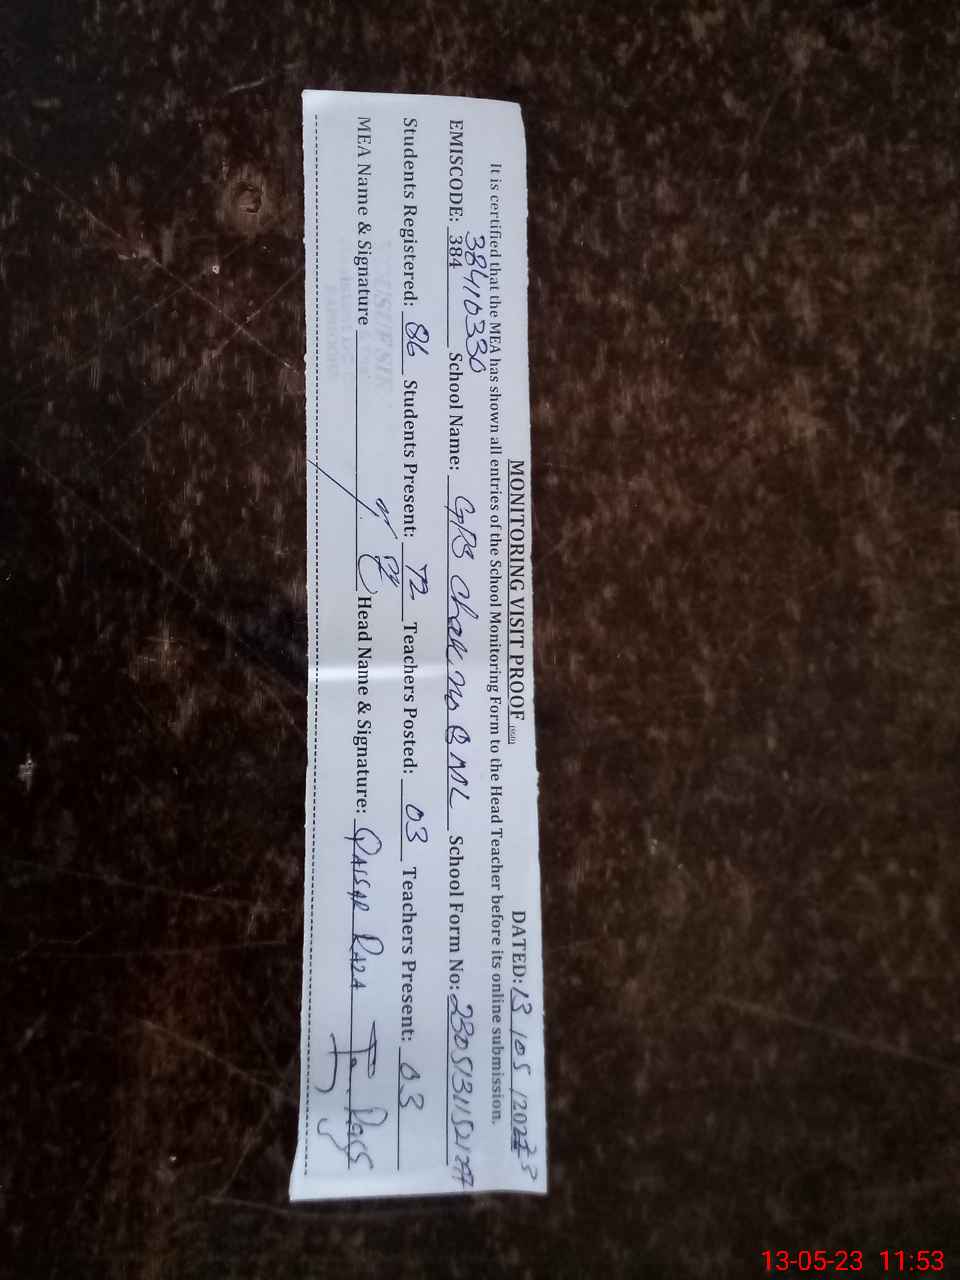 MONITORING VISIT PROOF DATED: 13 / 05 / 2023
It is certified that the MEA has shown all entries of the School Monitoring Form to the Head Teacher before its online submission.
EMISCODE: 384 38410330 School Name: GPS Chak no 8 ML School Form No:
Students Registered: 86 Students Present: 72 Teachers Posted: 03 Teachers Present: 03
MEA Name & Signature Head Name & Signature: QAISAR RAZA
13-05-23 11:53